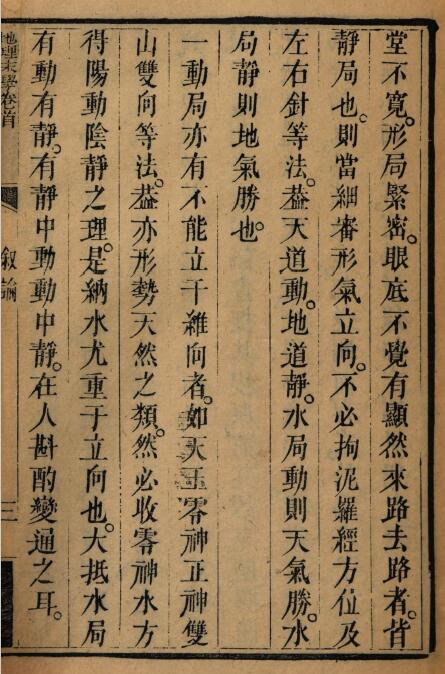 堂不寬。形局緊密。眼底不覺有顯然來路去路者。皆
靜局也。則當細審形氣立向。不必拘泥羅經方位及
左右針等法。葢天道動。地道靜。水局動則天氣勝。水
局靜則地氣勝也。
一動局亦有不能立干維向者。如天玉零神正神雙
山雙向等法。葢亦形勢天然之類。然必收零神水方
得陽動陰靜之理。是納水尤重于立向也。大抵水局
有動有靜。有靜中動動中靜。在人斟酌變通之耳。
地理末學卷首
叙論
三